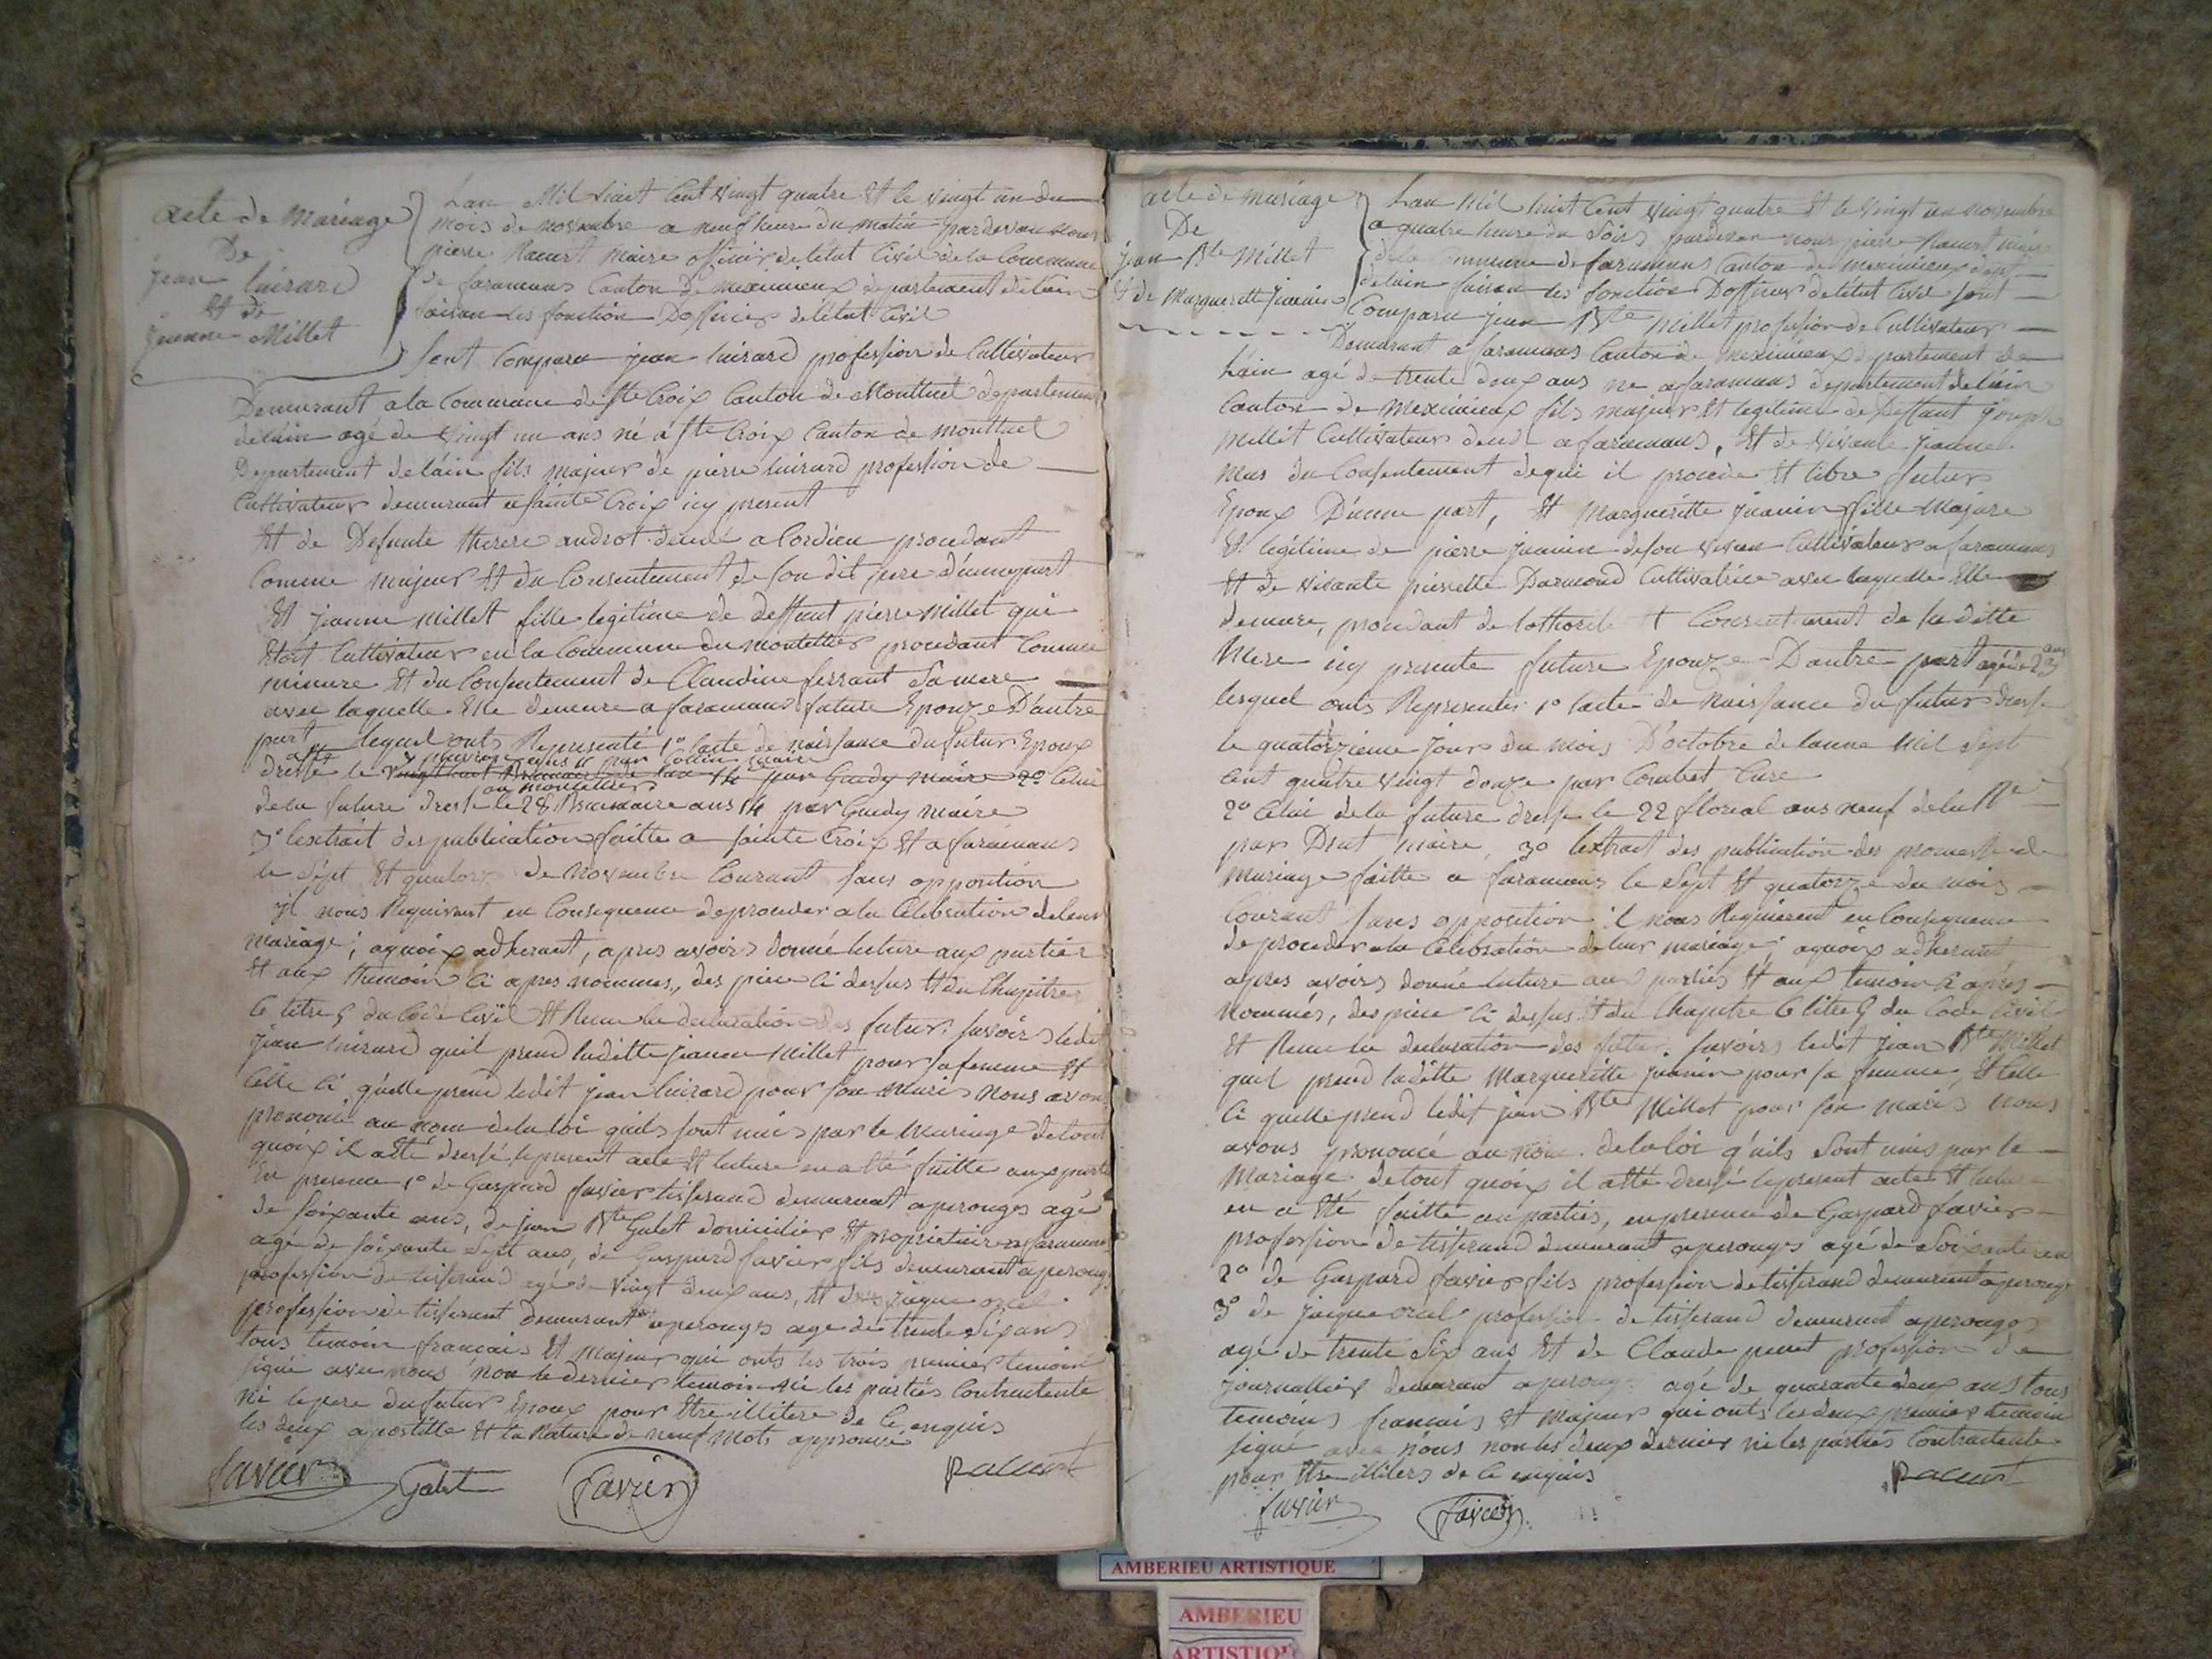 acte de Mariage
De
jean luirard
Et de
jeanne Millet
Lan Mil huit Cent vingt quatre Et le vingt un du
mois de novembre a neuf heure du matin pardevan nous
pierre Racurt maire officier de létat Civil de la Commune
de faramans Canton de meximieux departement de lain
faisan les fonction Dofficier de létat Civil
sont Comparu jean luirard profession de Cultivateur
Demeurant a la Commune de Ste Croix Canton de Montluel departement
de lain agé de vingt un ans né a Ste Croix Canton de montluel
Departement de láin fils majeur de pierre luirard profession de
Cultivateur demeurant a sainte Croix icy present
Et de Defunte therese androt dcede a Cordieu procedant
Comme majeur Et du Consentement de son dit pere d'une part
Et jeanne Millet fille legitime de deffunt pierre Millet qui
Etoit Cultivateur en la Commune du montellier procedant Comme
mineure Et du Consentement de Claudine ferrant Sa mere
avec laquelle Elle demeure a faramans future Epouze D'autre
part lequel onts Representé 1º lacte de naissance du futur Epoux
pluviose ans 11 par Collin maire
dressé le vingt huit Brumaire de lan 14 par Guedy maire 2º Celui
au montellier
de la future dressé le 28 Brumaire ans 14 par Guedy maire
3º lextrait des publication faitte a sainte Croix Et a faramans
le Sept Et quatorze de Novembre Courant sans opposition
il nous Requirent en Consequence de proceder a la Celebration de leur
mariage; a quoix adherant, apres avoirs donné lecture aux partier
Et aux temoin Ci apres nommes, des piece Ci dessus Et du Chapitre
6 titre 5 du Code Civil Et Recu la declaration des futur. savoirs ledit
jean luirard quil prend laditte jeanne Millet pour sa femme Et
Celle Ci quelle prend ledit jean luirard pour son Maris Nous avons
prononcé au nom de la loi quils sont unis par le Mariage de tout
quoix il a été dressé le present acte Et lecture en a Eté faitte aux parties
En presence 1º de Gaspard favier tisserand demeurant a perouges agé
de soixante ans, de jean Bte Galet domicilier Et proprietaire a faramans
agé de soixante Sept ans, de Gaspard favier fils demeurant a perouges
profession de tisserand agé de vingt deux ans, Et de jaque orcel
profession de tisserant demeurant a perouges age de trente Six ans
tous temoin francais Et Majeur qui onts les trois premier temoin
signé avec nous non le dernier temoin ni les partiés Contractente
ni le pere du futur Epoux pour Etre illitere de Ce enquis
les deux apostille Et la Rature de neuf Mots approuvé
favier Galet favier Racurt
acte de mariage
De
jean Bte Millet
Et de Margueritte Juanin
Lan Mil huit Cent vingt quatre Et le vingt un novembre
a quatre heure du Soirs pardevan nous pierre Racurt maire
de la Commune de faramans Canton de meximieux dept
de lain faisan les fonction Dofficier de létat Civil sont
Comparu jean Bte Millet profession de Cultivateur
Demeurant a faramans Canton de Meximieux departement de
Láin agé de trente deux ans ne a faramans departement de láin
Canton de Meximieux fils majeur Et legitime de Deffunt joseph
Millet Cultivateur dcede a faramans, Et de vivante jeanne
Mus du Consentement de qui il procede Et libre futur
Epoux D'une part, Et Marguéritte Juanin fille Majure
Et legitime de pierre juanin de son vivan Cultivateur a faramans
Et de vivante pierrette Darmond Cultivatrice avec laquelle Elle
demeure, procedant de lothorité Et Consentement de sa ditte
Mere icy presente future Epouze D'autre part agée de 23 ans
lesquel onts Representer 1º lacte de Naissance du futur dressé
le quatorzieme jours du mois D'octobre de lanne Mil Sept
Cent quatre vingt douze par Combet Cure
2º Celui de la future dressé le 22 floreal ans neuf de la Rque
par Drut maire, 3º lextrait des publication des promesse de
Mariage faitte a faramans le Sept Et quatorze du mois
Courant sans opposition il nous Requierent en Consequence
de proceder a la Celébration de leur mariage; a quoix adherant
apres avoirs donné lecture aux partiés Et aux temoin Ci apres
nommés, des piece Ci dessus Et du Chapitre 6 titre 5 du Code Civil
Et Recu la declaration des futur. savoirs ledit jean Bte Millet
quil prend laditte Marguerite juanin pour sa femme, Et Celle
Ci quelle prend ledit jean Bte Millet pour son maris nous
avons prononcé au nom de la loi q'uils sont unis par le
Mariage de tout quoix il a été dressé le present acte Et lecture
en a Eté faitte au partiés, en presence de Gaspard favier
profession de tisserand demeurant a perouges agé de Soixante ans
2º de Gaspard favier fils profession de tisserand demeurant a perouge
3º de jacque orcel profession de tisserand demeurant a perouges
agé de trente Six ans Et de Claude peret profession de
journallier demeurant a peroug. agé de quarante deux ans tous
temoins francais Et Majeur qui onts les deux premier temoin
signé avec nous non les deux dernier ni les partiés Contractente
pour Etre illiters de Ce enquis
favier favier Racurt
AMBERIEU ARTISTIQUE
AMBERIEU
ARTISTIQUE